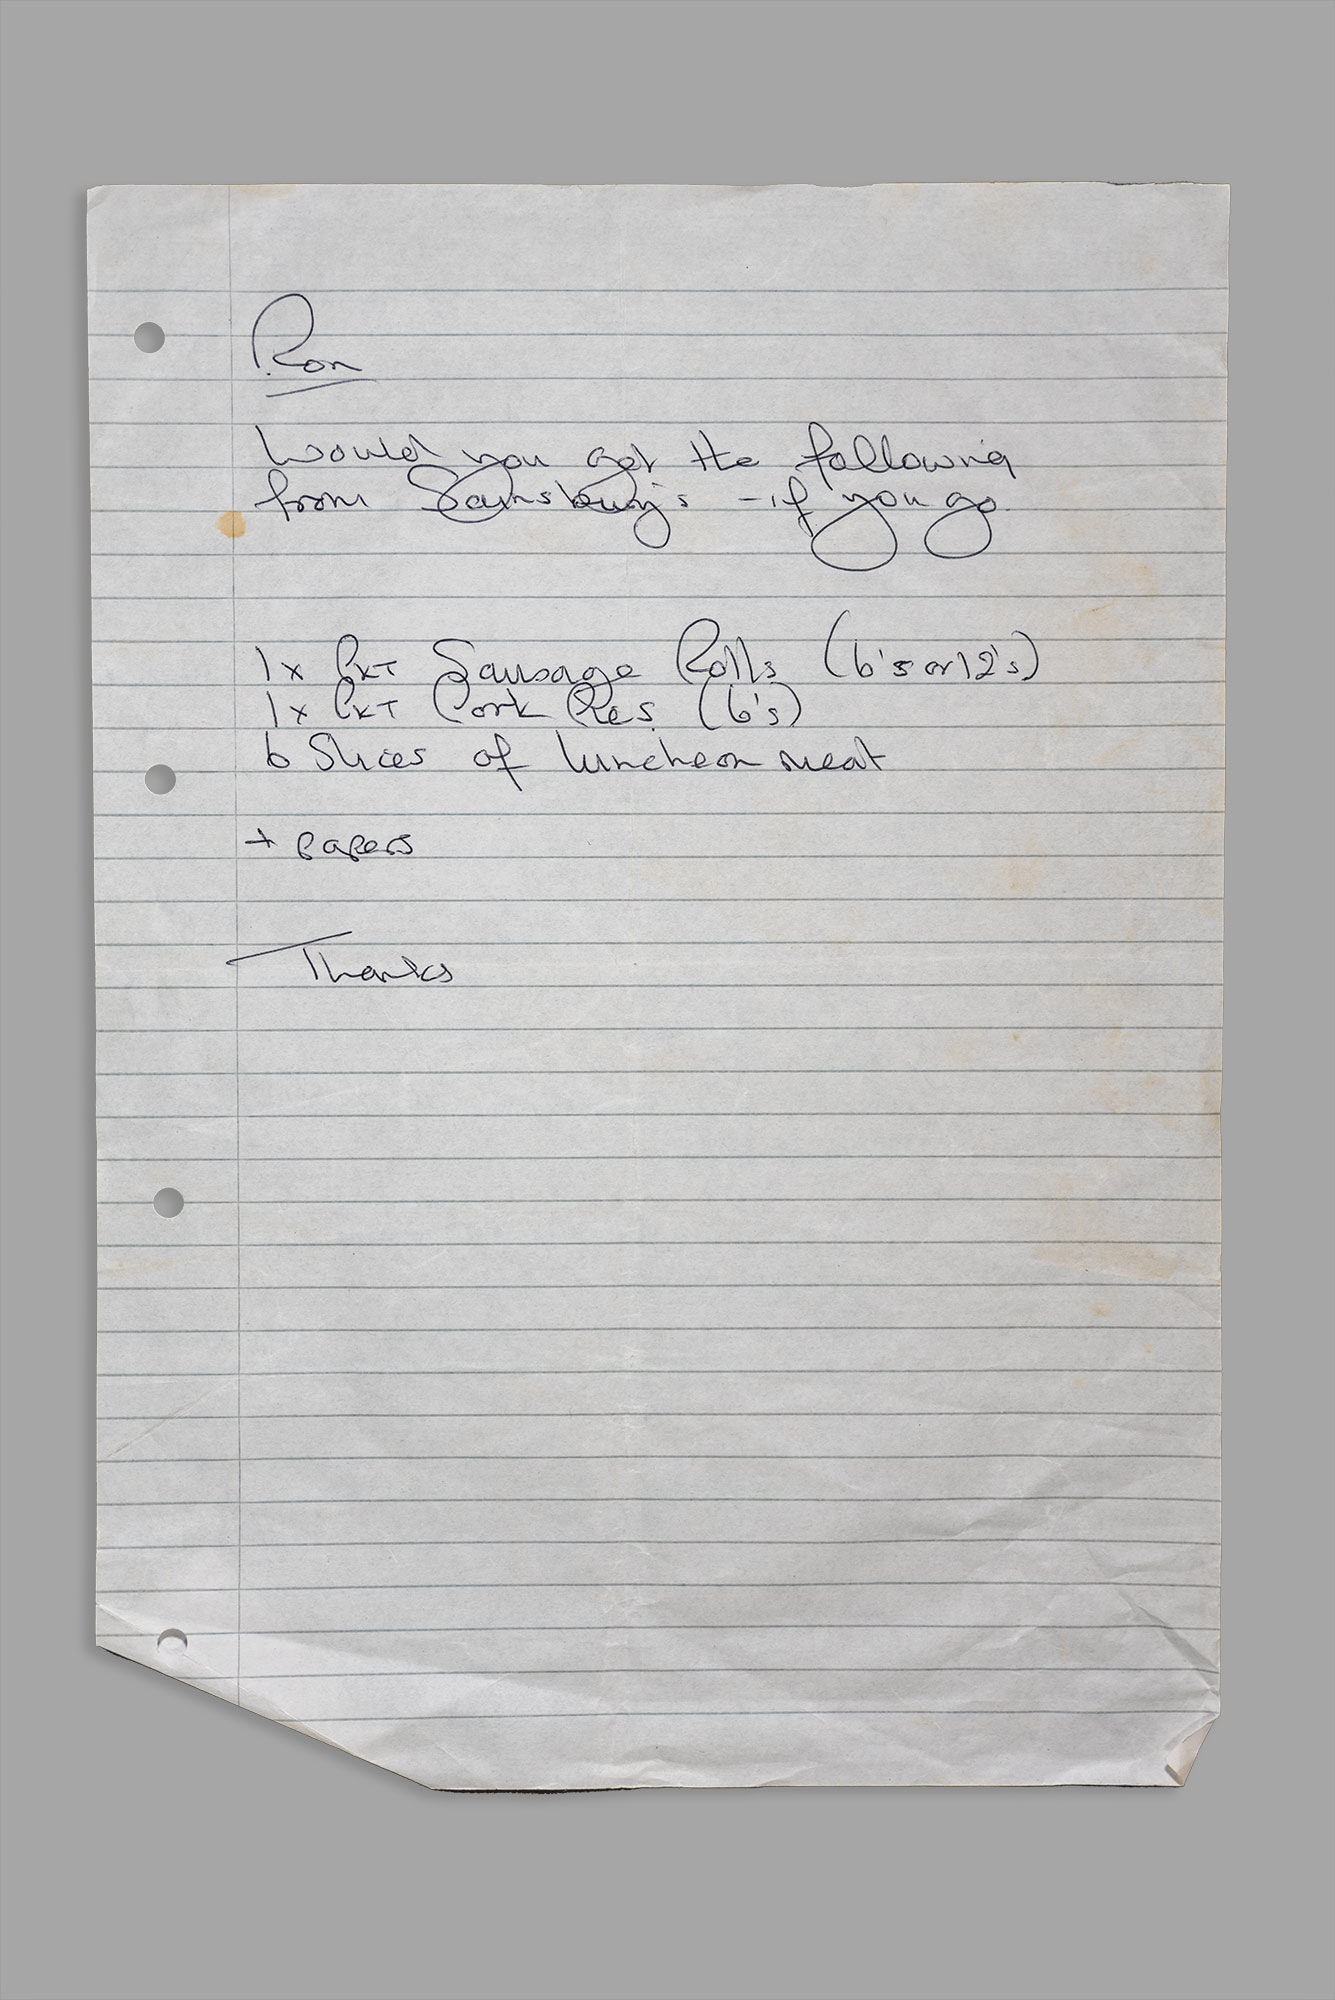 Ron
Would you get the following
from Sainsbury's - if you go.
1 x PKT Sausage Rolls (6's or 12's)
1 x PKT Pork Pies (6's)
6 Slices of luncheon meat
+ papers
Thanks